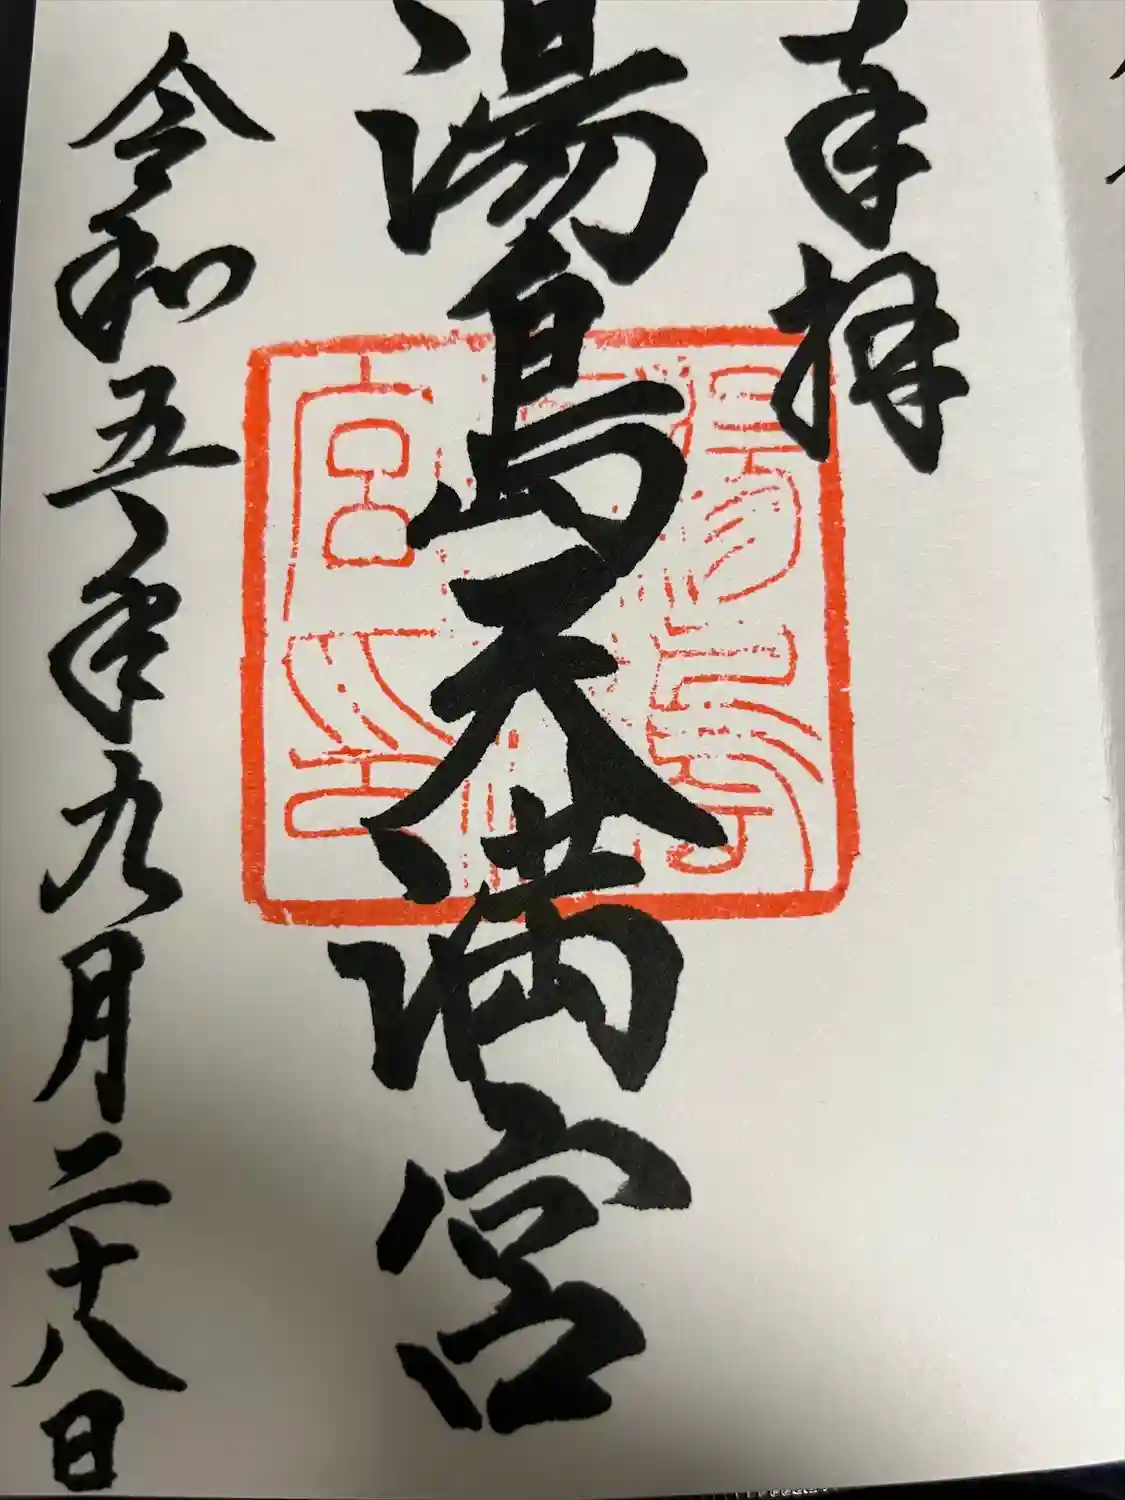 奉拝
湯島天満宮
湯島天満宮印
令和五年九月二十八日